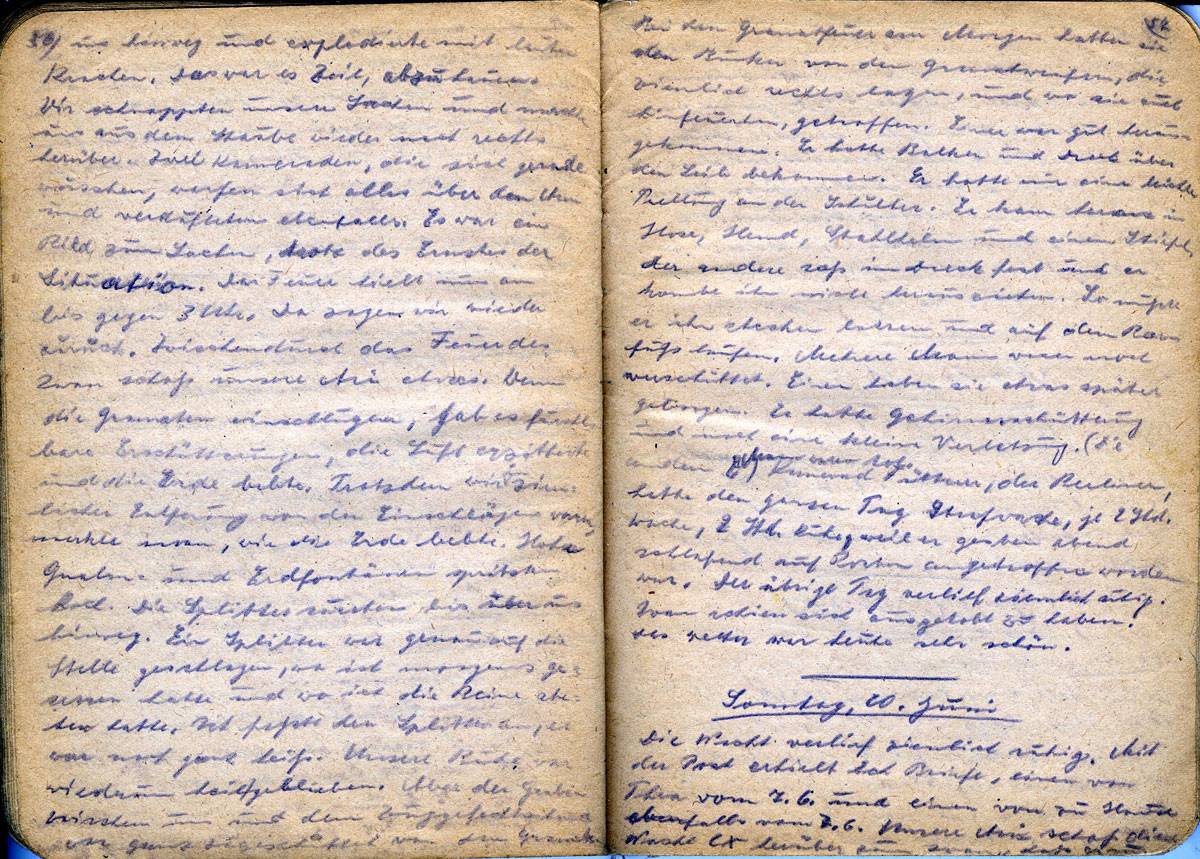 50) uns hinweg und explodierte mit lautem
Krachen. Da war es Zeit, abzuhauen
Wir schnappten unsere Sachen und machten
uns aus dem Staube wieder nach rechts
herüber. Zwei Kameraden, die sich gerade
wuschen, warfen alles über den
und verdufteten ebenfalls. Es war ein
Bild zum Lachen, trotz des Ernstes der
Situation. Das Feuer hielt nun an
bis gegen 3 Uhr. Da zogen wir wieder
zurück. Zwischendurch das Feuer des
Iwan schoß unsere Ari etwas. Wenn
die Granaten einschlugen, gab es furcht-
bare Erschütterungen, die Luft erzitterte
und die Erde bebte. Trotzdem wir ziem-
licher Entfernung von den Einschlägen waren
merkte man, wie die Erde bebte. Hohe
Qualm- und Erdfontänen spritzten
hoch. Die Splitter surrten bis über uns
hinweg. Ein Splitter war genau auf die
Stelle geschlagen, wo ich morgens ge-
sessen hatte und wo ich die Beine
hatte. Ich faßte den Splitter an, er
war noch ganz heiß. Unsere Bude war
wiederum heilgeblieben. Aber der Graben
zwischen uns und dem
war ganz von den Granaten
51
Bei dem Granatfeuer am Morgen hatten sie
den Bunker von den Granatwerfern, die
ziemlich rechts lagen, und wo sie auch
hinfeuerten, getroffen. Einer war gut heraus-
gekommen. Er hatte Balken und Dreck über
den Leib bekommen. Er hatte nur eine leichte
Prellung an der Schulter. Er kam heraus in
Hose, Hemd, Stahlhelm und einen Stiefel,
der andere saß im Dreck fest und er
konnte ihn nicht herausziehen. Er mußte
er ihn stecken lassen und auf dem
fuß laufen. Mehrere Mann waren noch
verschüttet. Einen haben sie etwas später
geborgen. Er hatte Gehirnerschütterung
und noch eine kleine Verletzung. (Die
andern waren tot) Kamerad der Berliner,
hatte den ganzen Tag Strafwache, je 2 Std.
Wache, 2 Std. Ruhe, weil er gestern abend
schlafend auf Posten angetroffen worden
war. Der übrige Tag verlief ziemlich ruhig.
Iwan schien sich ausgetobt zu haben.
Das Wetter war heute sehr schön.
Sonntag, 20. Juni
Die Nacht verlief ziemlich ruhig. Mit
der Post erhielt ich Briefe, einen von
Thea vom 7.6. und einen von zu Hause
ebenfalls vom 7.6. Unsere Ari schoß diese
Nacht herüber zum Iwan,